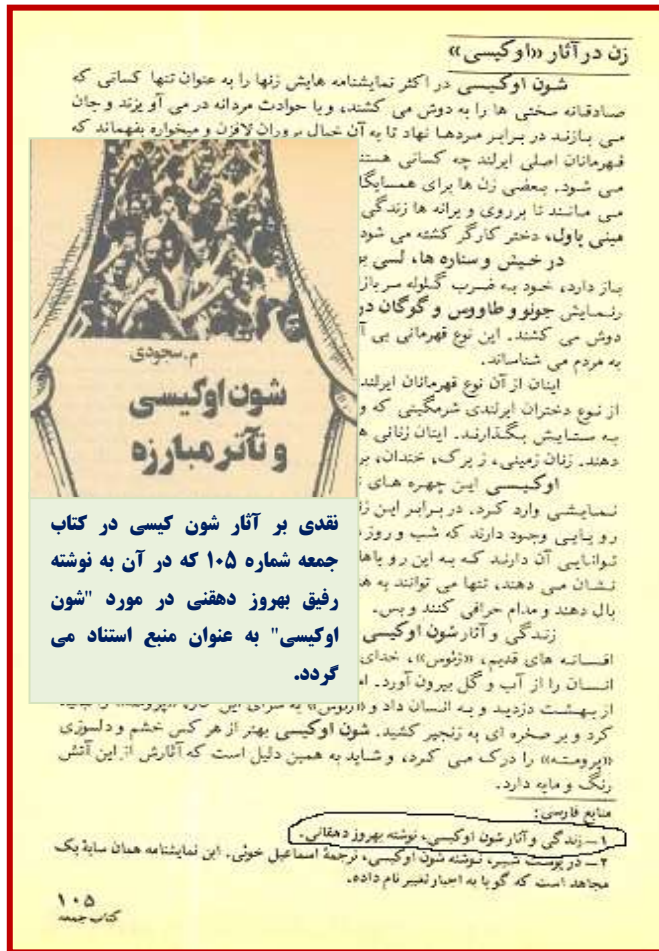 زن در آثار «اوکیسی»
شون اوکیسی در اکثر نمایشنامه هایش زنها را به عنوان تنها کسانی که
صادقانه سختی ها را به دوش می کشند، و با حوادث مردانه در می آویزند و جان
می بازند در برابر مردها نهاد تا به آن خیال پروران لافزن و میخواره بفهماند که
قهرمانان اصلی ایرلند چه کسانی هستند
می شود. بعضی زن ها برای همسایگا
می مانند تا برروی ویرانه ها زندگی
مینی پاول، دختر کارگر کشته می شود
در خیش و ستاره ها، لسی بر
باز دارد، خود به ضرب گلوله سرباز
رنمایش جونو و طاووس و گوگان در
دوش می کشند. این نوع قهرمانی بی آ
به مردم می شناساند.
اینان از آن نوع قهرمانان ایرلند
از نوع دختران ایرلندی شرمگینی که و
به ستایش بگذارند. اینان زنانی ه
دهند. زنان زمینی، زیرک، خندان، بر
اوکیسی این چهره های ز
نمایشی وارد کرد. در برابر این زن
رویایی وجود دارند که شب و روز
توانایی آن دارند که به این رویاها
نشان می دهند، تنها می توانند به ه
بال دهند و مدام حرافی کنند و بس.
زندگی و آثار شون اوکیسی
افسانه های قدیم، «زئوس»، خدای
انسان را از آب و گل بیرون آورد. اما
از بهشت دزدید و به انسان داد و «زئوس» به سزای این کار، «پرومته» را
کرد و بر صخره ای به زنجیر کشید. شون اوکیسی بهتر از هر کس خشم و دلسوزی
«پرومته» را درک می کرد، و شاید به همین دلیل است که آثارش از این آتش
رنگ و مایه دارد.
منابع فارسی:
۱ــ زندگی و آثار شون اوکیسی، نوشته بهروز دهقانی.
۲ــ در پوست شیر، نوشته شون اوکیسی، ترجمهٔ اسماعیل خوئی. این نمایشنامه همان سایهٔ یک
مجاهد است که گویا به اجبار تغییر نام داده.
۱۰۵
کتاب جمعه
م.سجودی
شون اوکیسی
و تآتر مبارزه
نقدی بر آثار شون کیسی در کتاب
جمعه شماره ۱۰۵ که در آن به نوشته
رفیق بهروز دهقنی در مورد "شون
اوکیسی" به عنوان منبع استناد می
گردد.